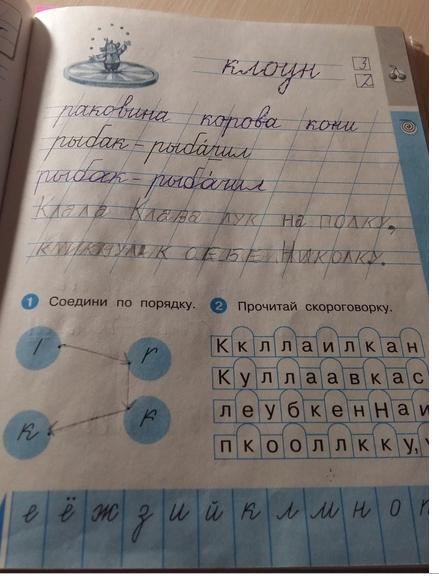 клоун
3
2
раковина корова кони
рыбак – рыбачил
рыбак – рыбачил
Клала Клава лук на полку,
кликнула к себе Николку.
1 Соедини по порядку. 2 Прочитай скороговорку.
Ккллаилкан
Куллаавкас
леубкеннНаи
пкооллкку,
е ё ж з и й к л м н о п